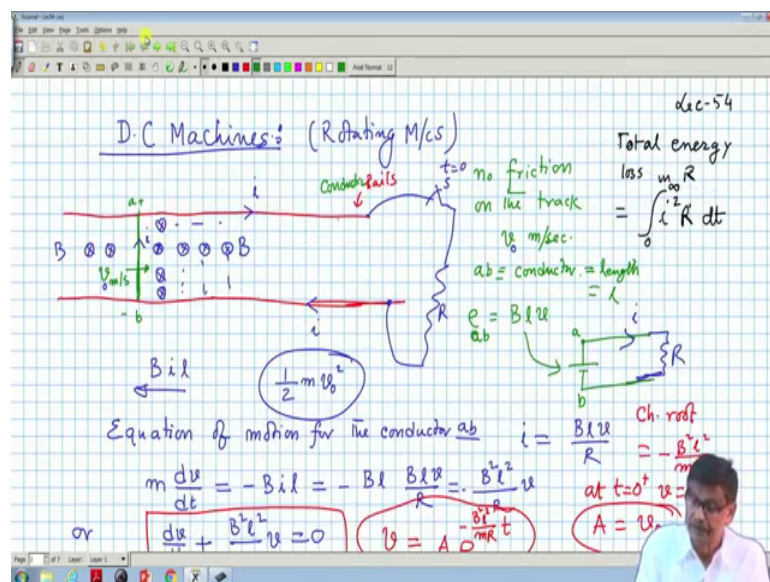 Journal - Lec54.xoj
File Edit View Page Tools Options Help
Arial Normal 12
Lec-54
D.C Machines: (Rotating M/cs)
Total energy
loss in R
= ∫₀^∞ i² R dt
Conductor Rails
t=0
S
no friction
on the track
v₀ m/sec.
ab = conductor. = length
= l
a+
i
i
B ⊗ ⊗ ⊗ ⊗ ⊗ ⊗ B
v₀ m/s
- b
i
R
e_ab = Blv
a
i
R
b
Bil
½ m v₀²
Equation of motion for the conductor ab
i = Blv/R
Ch. root
m dv/dt = - Bil = - Bl Blv/R = - B²l²/R v
at t=0⁺ v =
or
+ B²l² v = 0
v = A e^(-B²l²/mR t)
A = v₀
Page 3 of 7 Layer: Layer 1